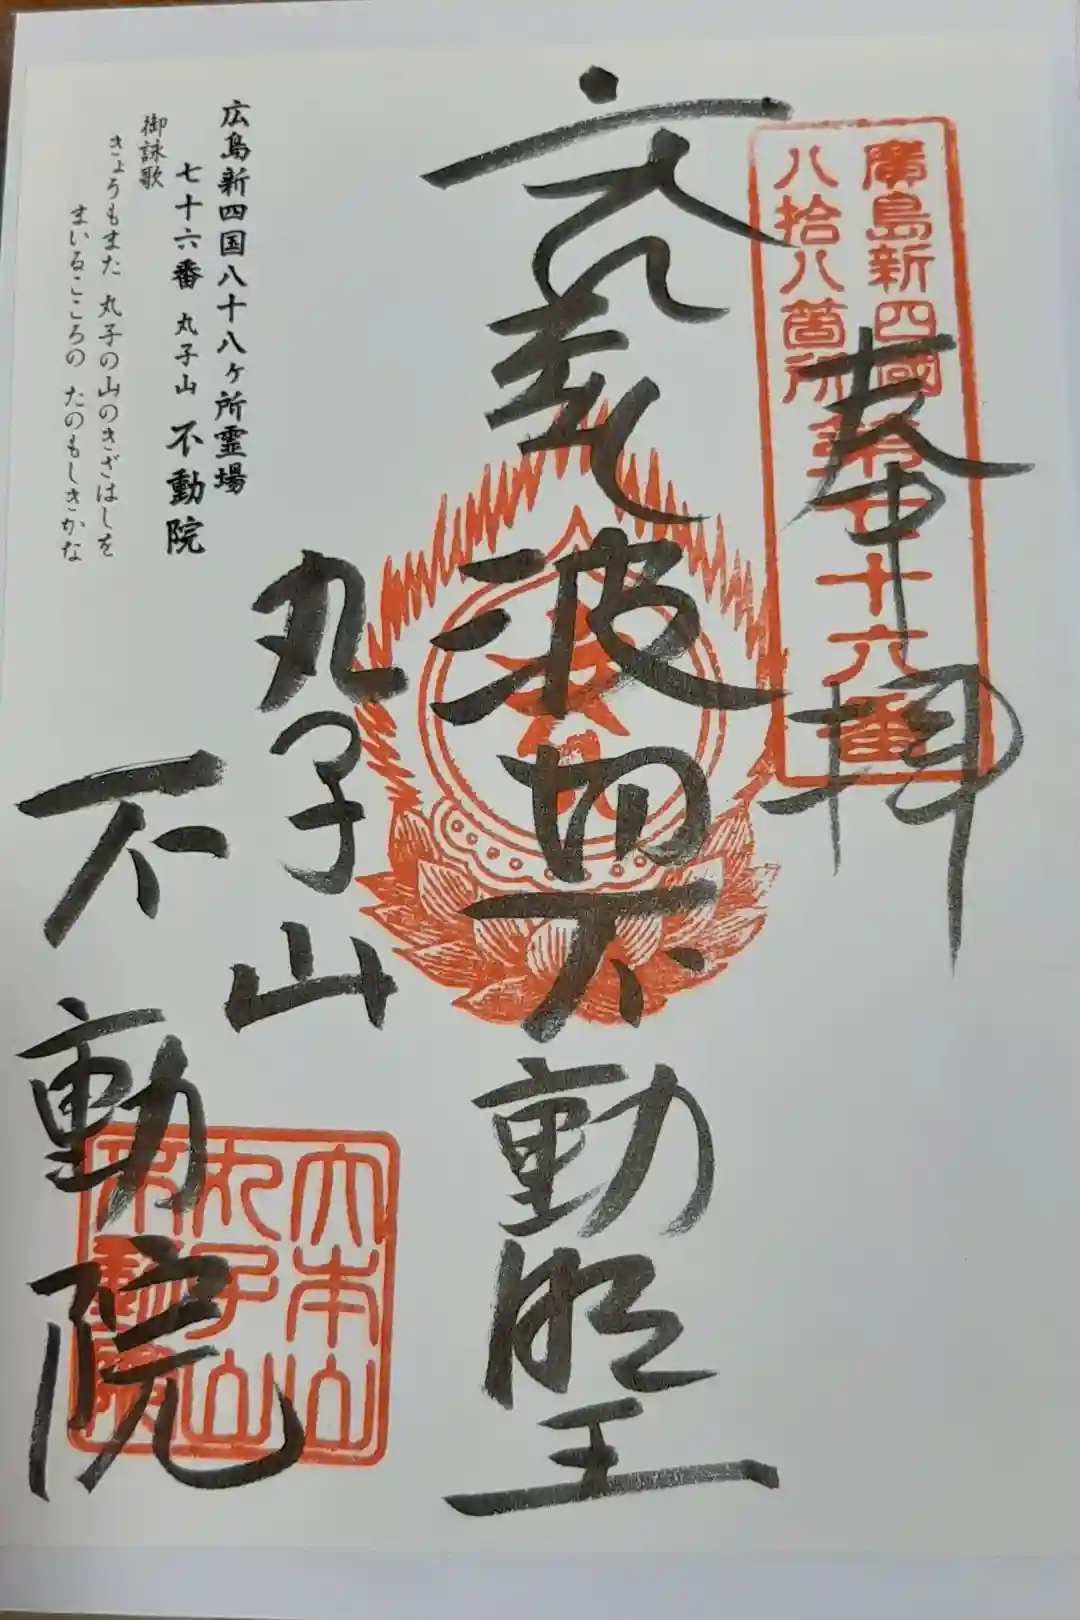 廣島新四國
八拾八箇所
第七十六番
奉拝
波切不動明王
丸子山
不動院
大本山
丸子山
不動院
広島新四国八十八ヶ所霊場
七十六番 丸子山 不動院
御詠歌
きょうもまた 丸子の山のきざはしを
まいるこころの たのもしきかな